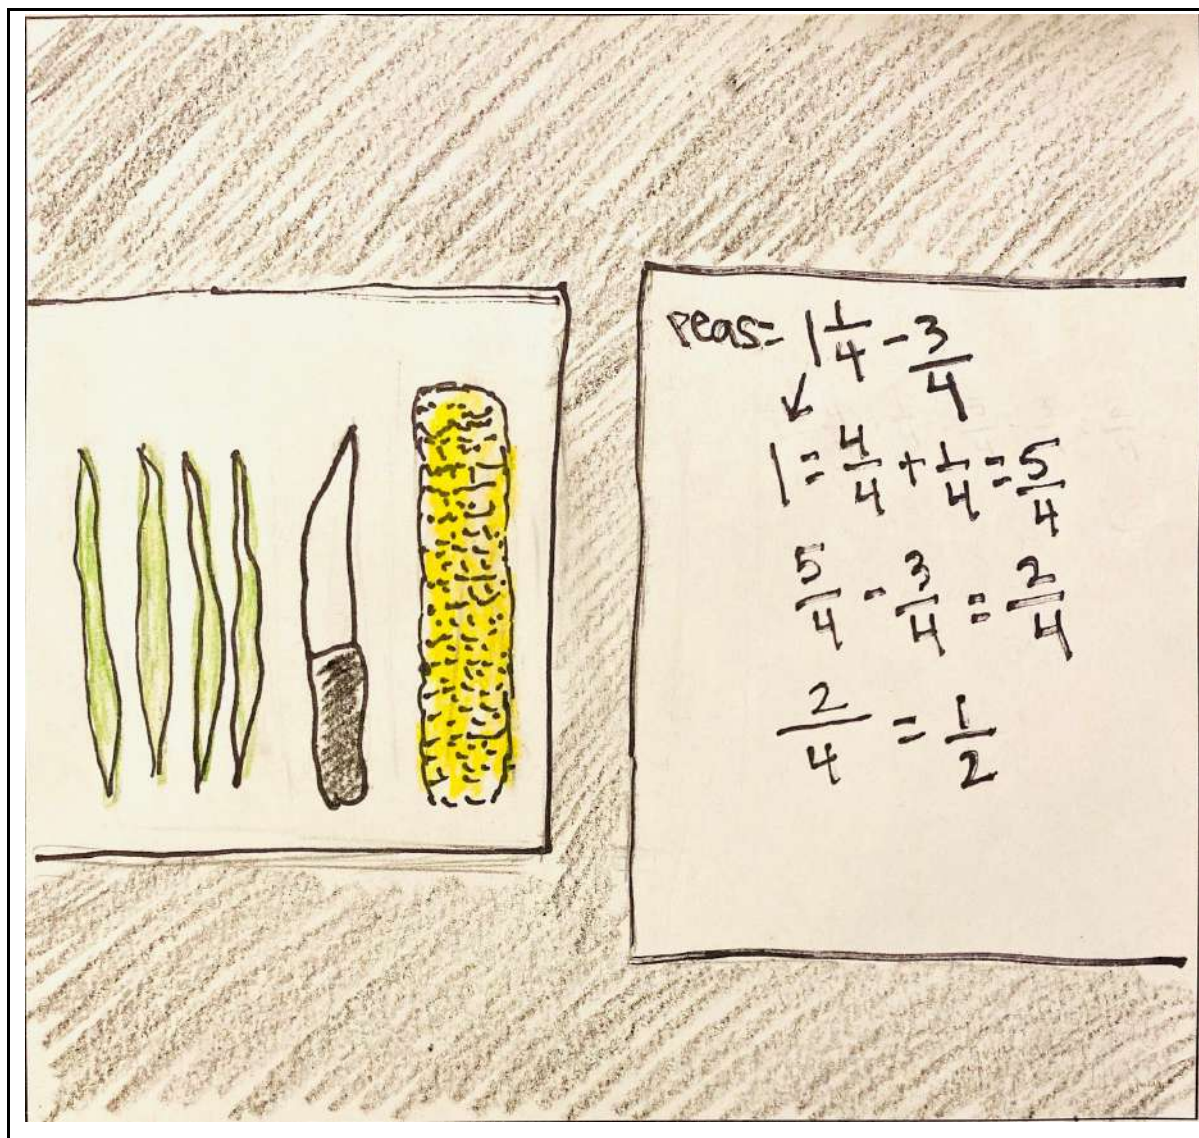 peas= 1 1/4 - 3/4
1 = 4/4 + 1/4 = 5/4
5/4 - 3/4 = 2/4
2/4 = 1/2